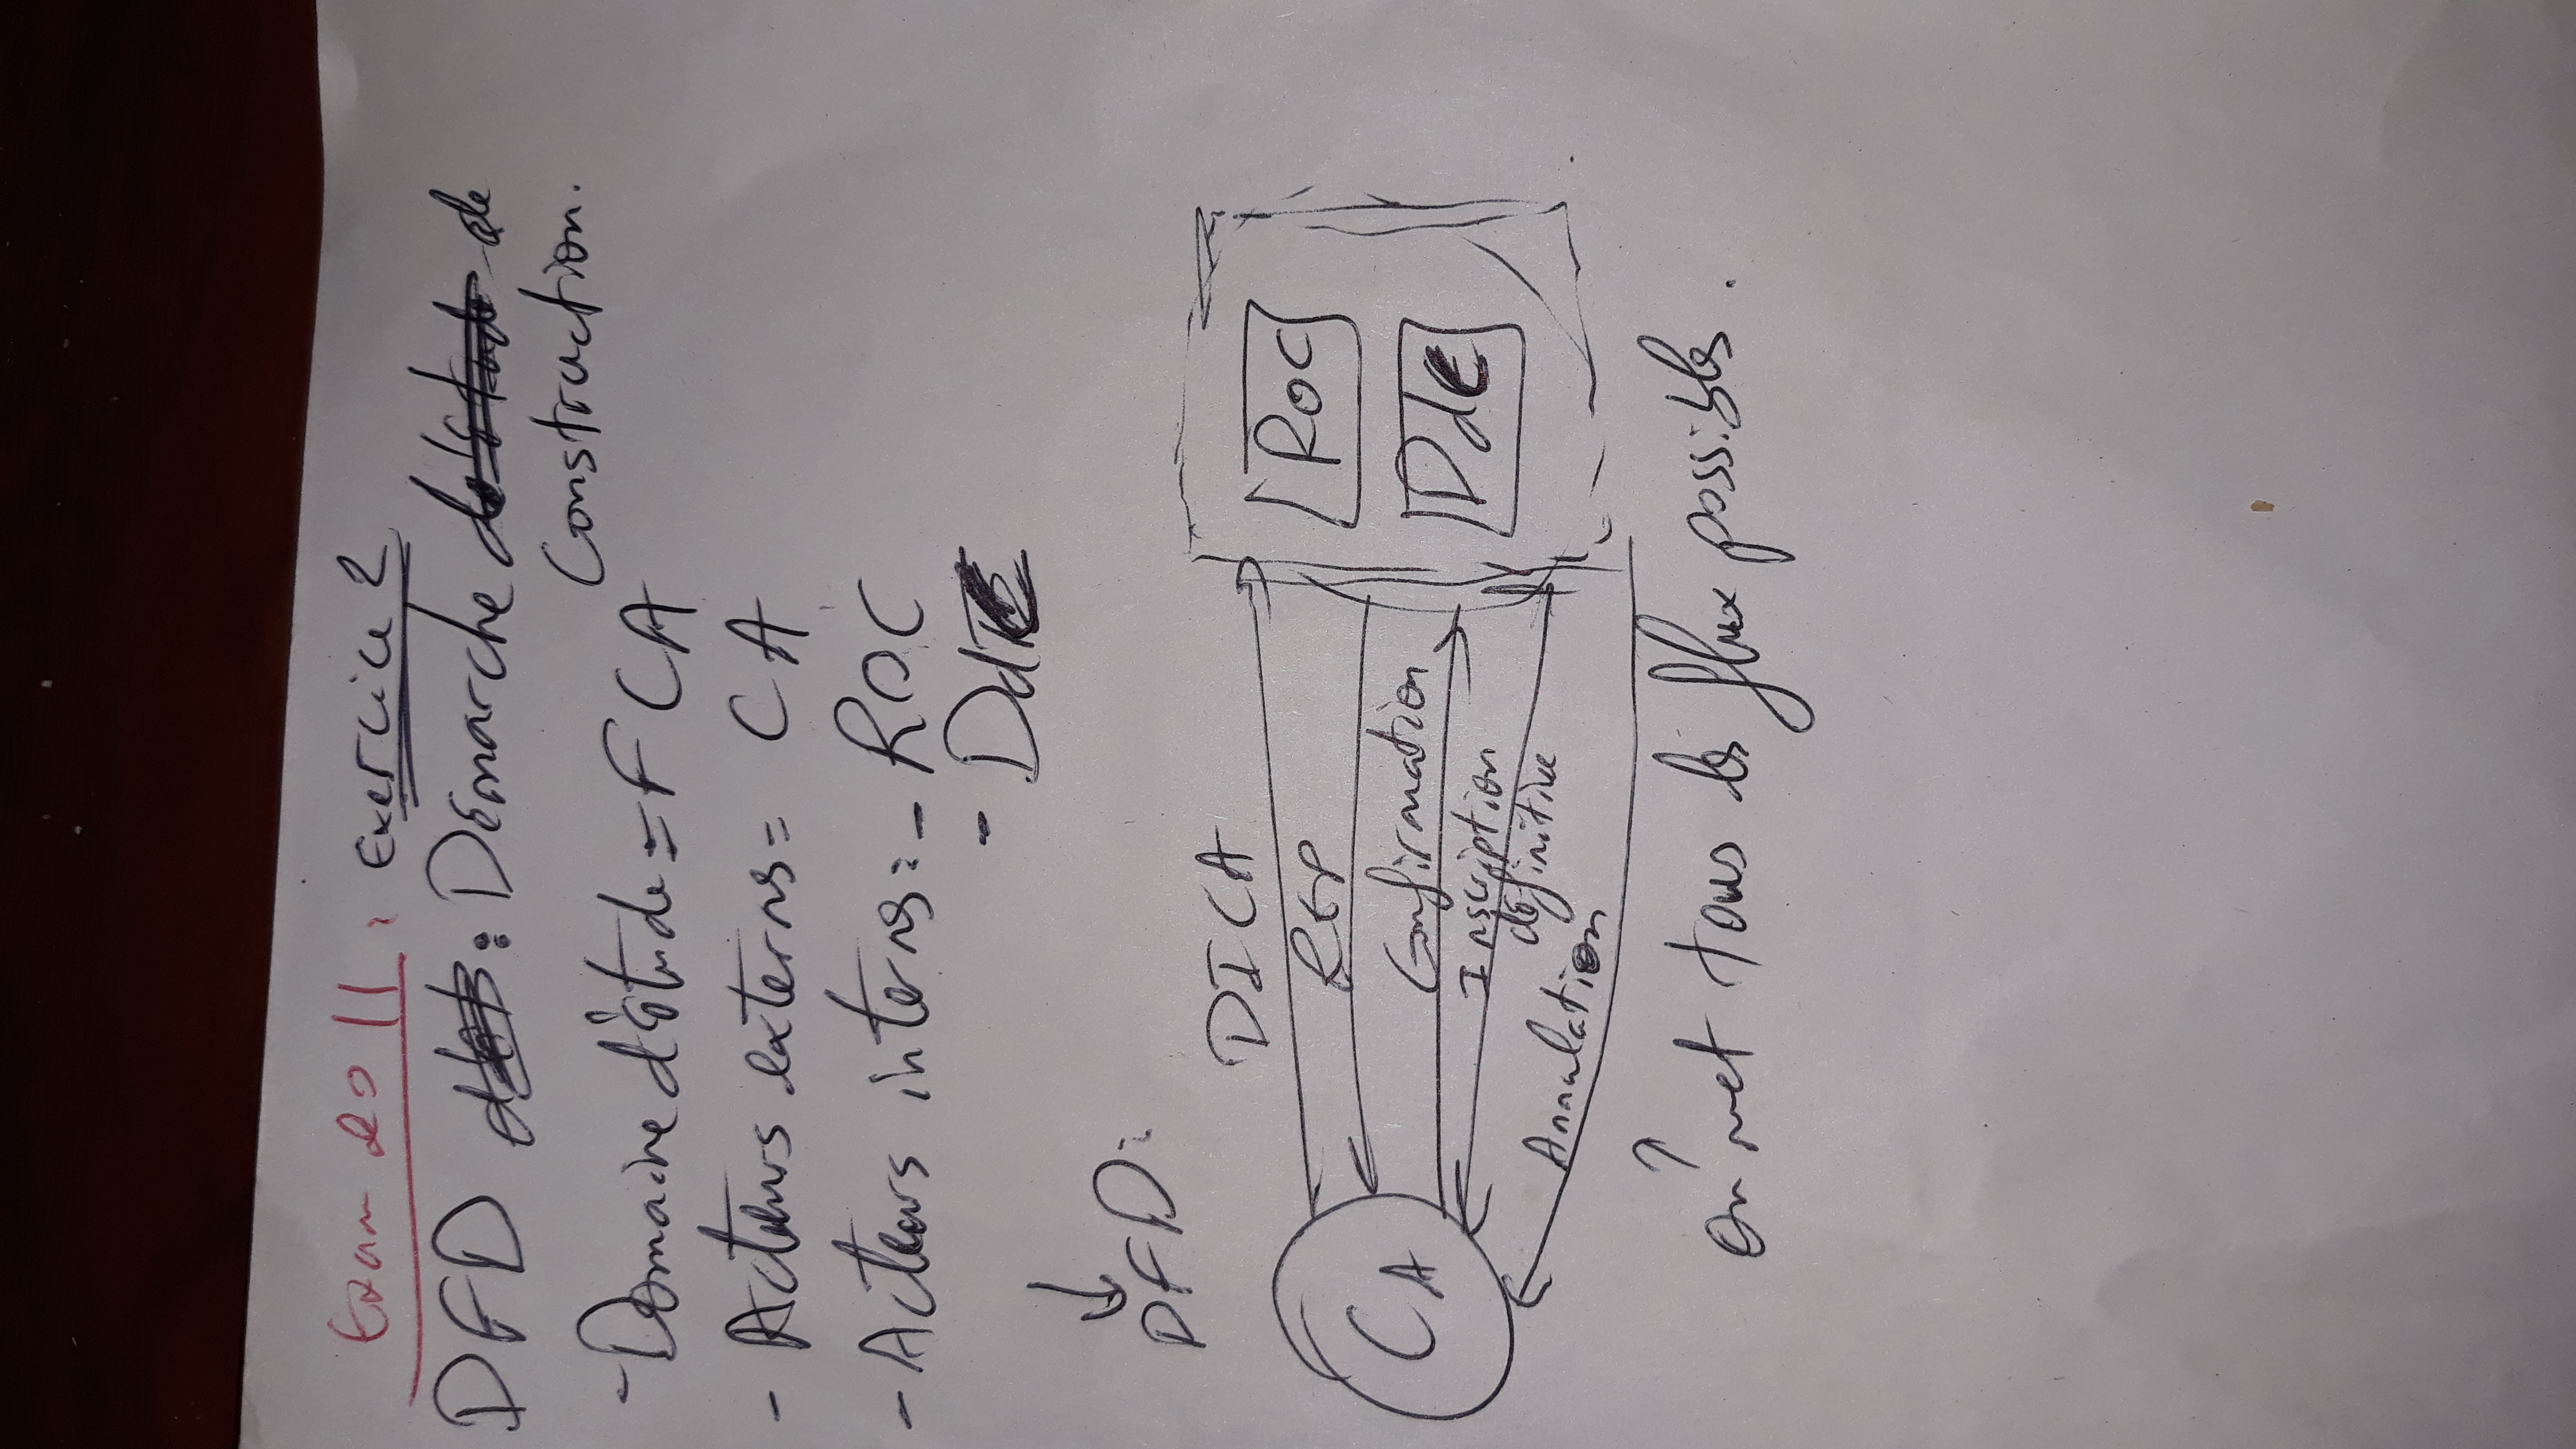 Exam 2011 : Exercice 2
DFD : Démarche de
Construction.
- Domaine d'étude = FCA
- Acteurs externes = CA
- Acteurs internes : - ROC
- DdC
DFD :
DICA
REP
Confirmation
Inscription
définitive
Annulation
CA
ROC
DdC
on met tous les flux possibles.